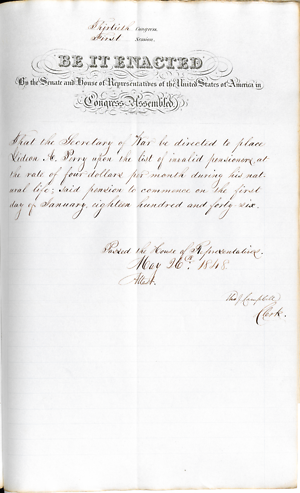 Thirtieth Congress
First Session
BE IT ENACTED
By the Senate and House of Representatives of the United States of America in
Congress Assembled,
That the Secretary of War be directed to place
A. Perry upon the list of invalid pensioners, at
the rate of four dollars per month during his nat-
ural life; said pension to commence on the first
day of January, eighteen hundred and forty six.
Passed the House of Representatives
May 26th 1848.
Attest.
Campbell
Clerk.